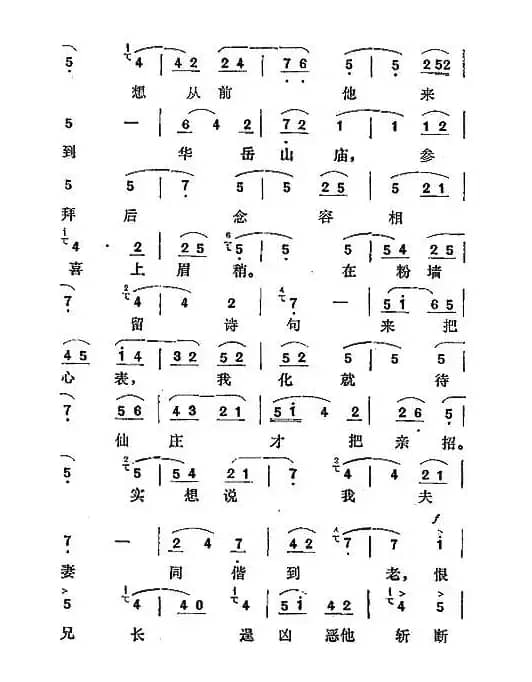 5 4 | 4 2 2 4 | 7 6 5 | 5 2 5 2
想 从 前 他 来
5 — | 6 4 2 | 7 2 1 | 1 1 2
到 华 岳 山 庙， 参
5 5 | 7 5 | 5 2 5 | 5 2 1
拜 后 念 容 相
4 2 | 2 5 5 | 5 5 | 5 4 5
喜 上 眉 稍。 在 粉 墙
7 4 | 4 2 | 7 — | 5 i 6 5
留 诗 句 来 把
4 5 i 4 | 3 2 5 2 | 5 2 5 | 5 5
心 表， 我 化 就 待
7 5 6 | 4 3 2 1 | 5 i 4 2 | 2 6 5
仙 庄 才 把 亲 招。
5 5 | 5 4 2 1 | 7 4 | 4 2 1
实 想 说 我 夫
f
7 — | 2 4 7 | 4 2 7 | 7 i
妻 同 偕 到 老， 恨
5 4 | 4 0 5 i | 4 2 4 | 5
兄 长 逞 凶 恶 他 斩 断